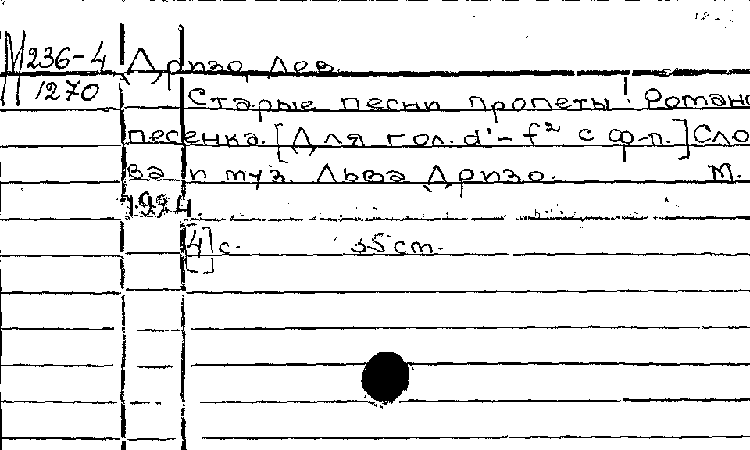 М 236-4 Дризо, Лев.
1270 Старые песни пропеты! Роман
песенка. [Для гол. d'-f² с ф-п.] Сло
ва и муз. Льва Дризо. М.
1924.
[4] с. 35 cm.